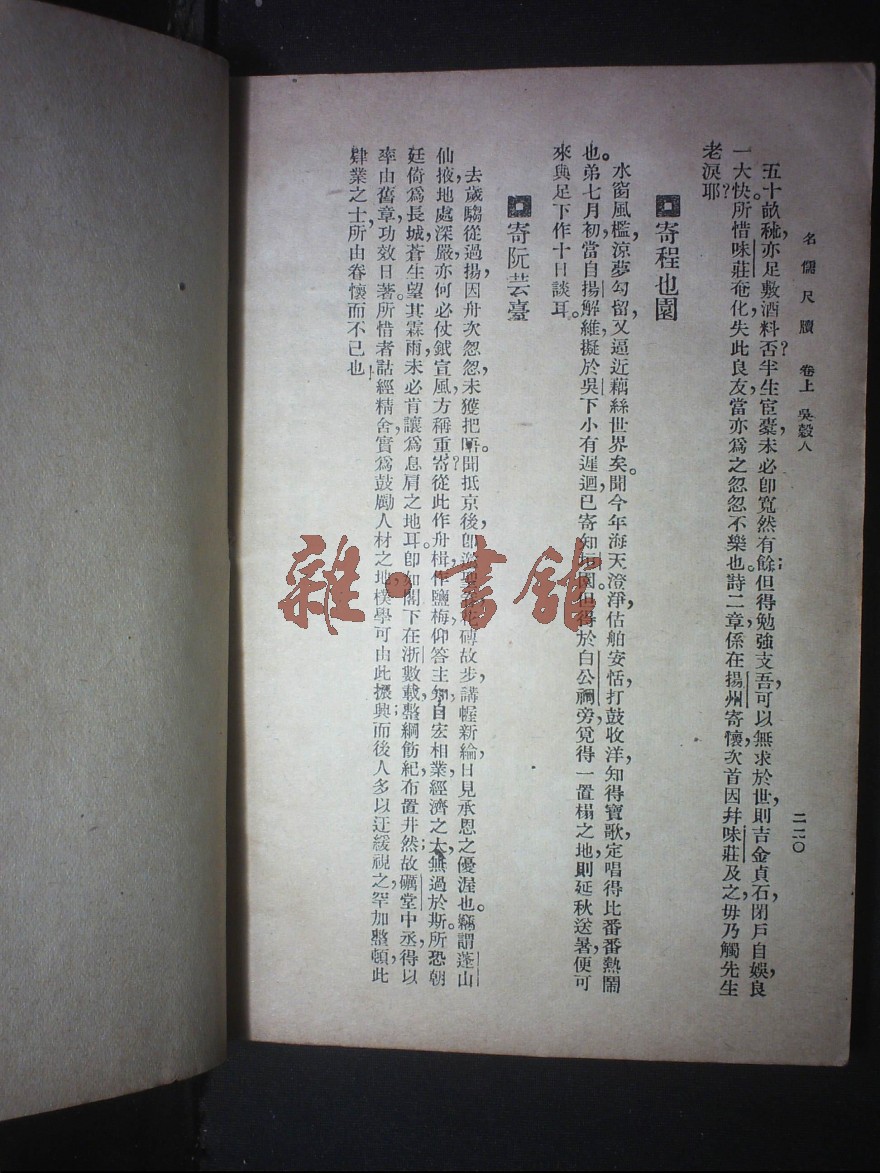 名儒尺牘　卷上　吳穀人
二二〇
五十畝秫，亦足敷酒料否？半生宦橐，未必卽寬然有餘；但得勉強支吾，可以無求於世，則吉金貞石，閉戶自娛，良
一大快。所惜味莊奄化，失此良友，當亦爲之忽忽不樂也。詩二章，係在揚州寄懷，次首因幷味莊及之，毋乃觸先生
老淚耶？
寄程也園
水窗風檻，涼夢勾留，又逼近藕絲世界矣。聞今年海天澄淨，估舶安恬，打鼓收洋，知得寶歌，定唱得比番番熱鬧
也。弟七月初當自揚解維，擬於吳下小有遲迴，已寄知 園。但得於白公祠旁，覓得一置榻之地，則延秋送暑，便可
來與足下作十日談耳。
寄阮芸臺
去歲騶從過揚，因舟次怱怱，未獲把晤。聞抵京後，卽 花磚故步，講幄新綸，日見承恩之優渥也。竊謂蓬山
仙掖，地處深嚴，亦何必仗鉞宣風，方稱重寄？從此作舟楫，作鹽梅，仰答主知，自宏相業，經濟之大，無過於斯。所恐朝
廷倚爲長城，蒼生望其霖雨，未必肯讓爲息肩之地耳。卽如閣下在浙數載，整綱飭紀，布置井然；故礪堂中丞得以
率由舊章，功效日著。所惜者詁經精舍，實爲鼓勵人材之地，樸學可由此振興；而後人多以迂緩視之，罕加整頓，此
肄業之士，所由眷懷而不已也
雜·書館